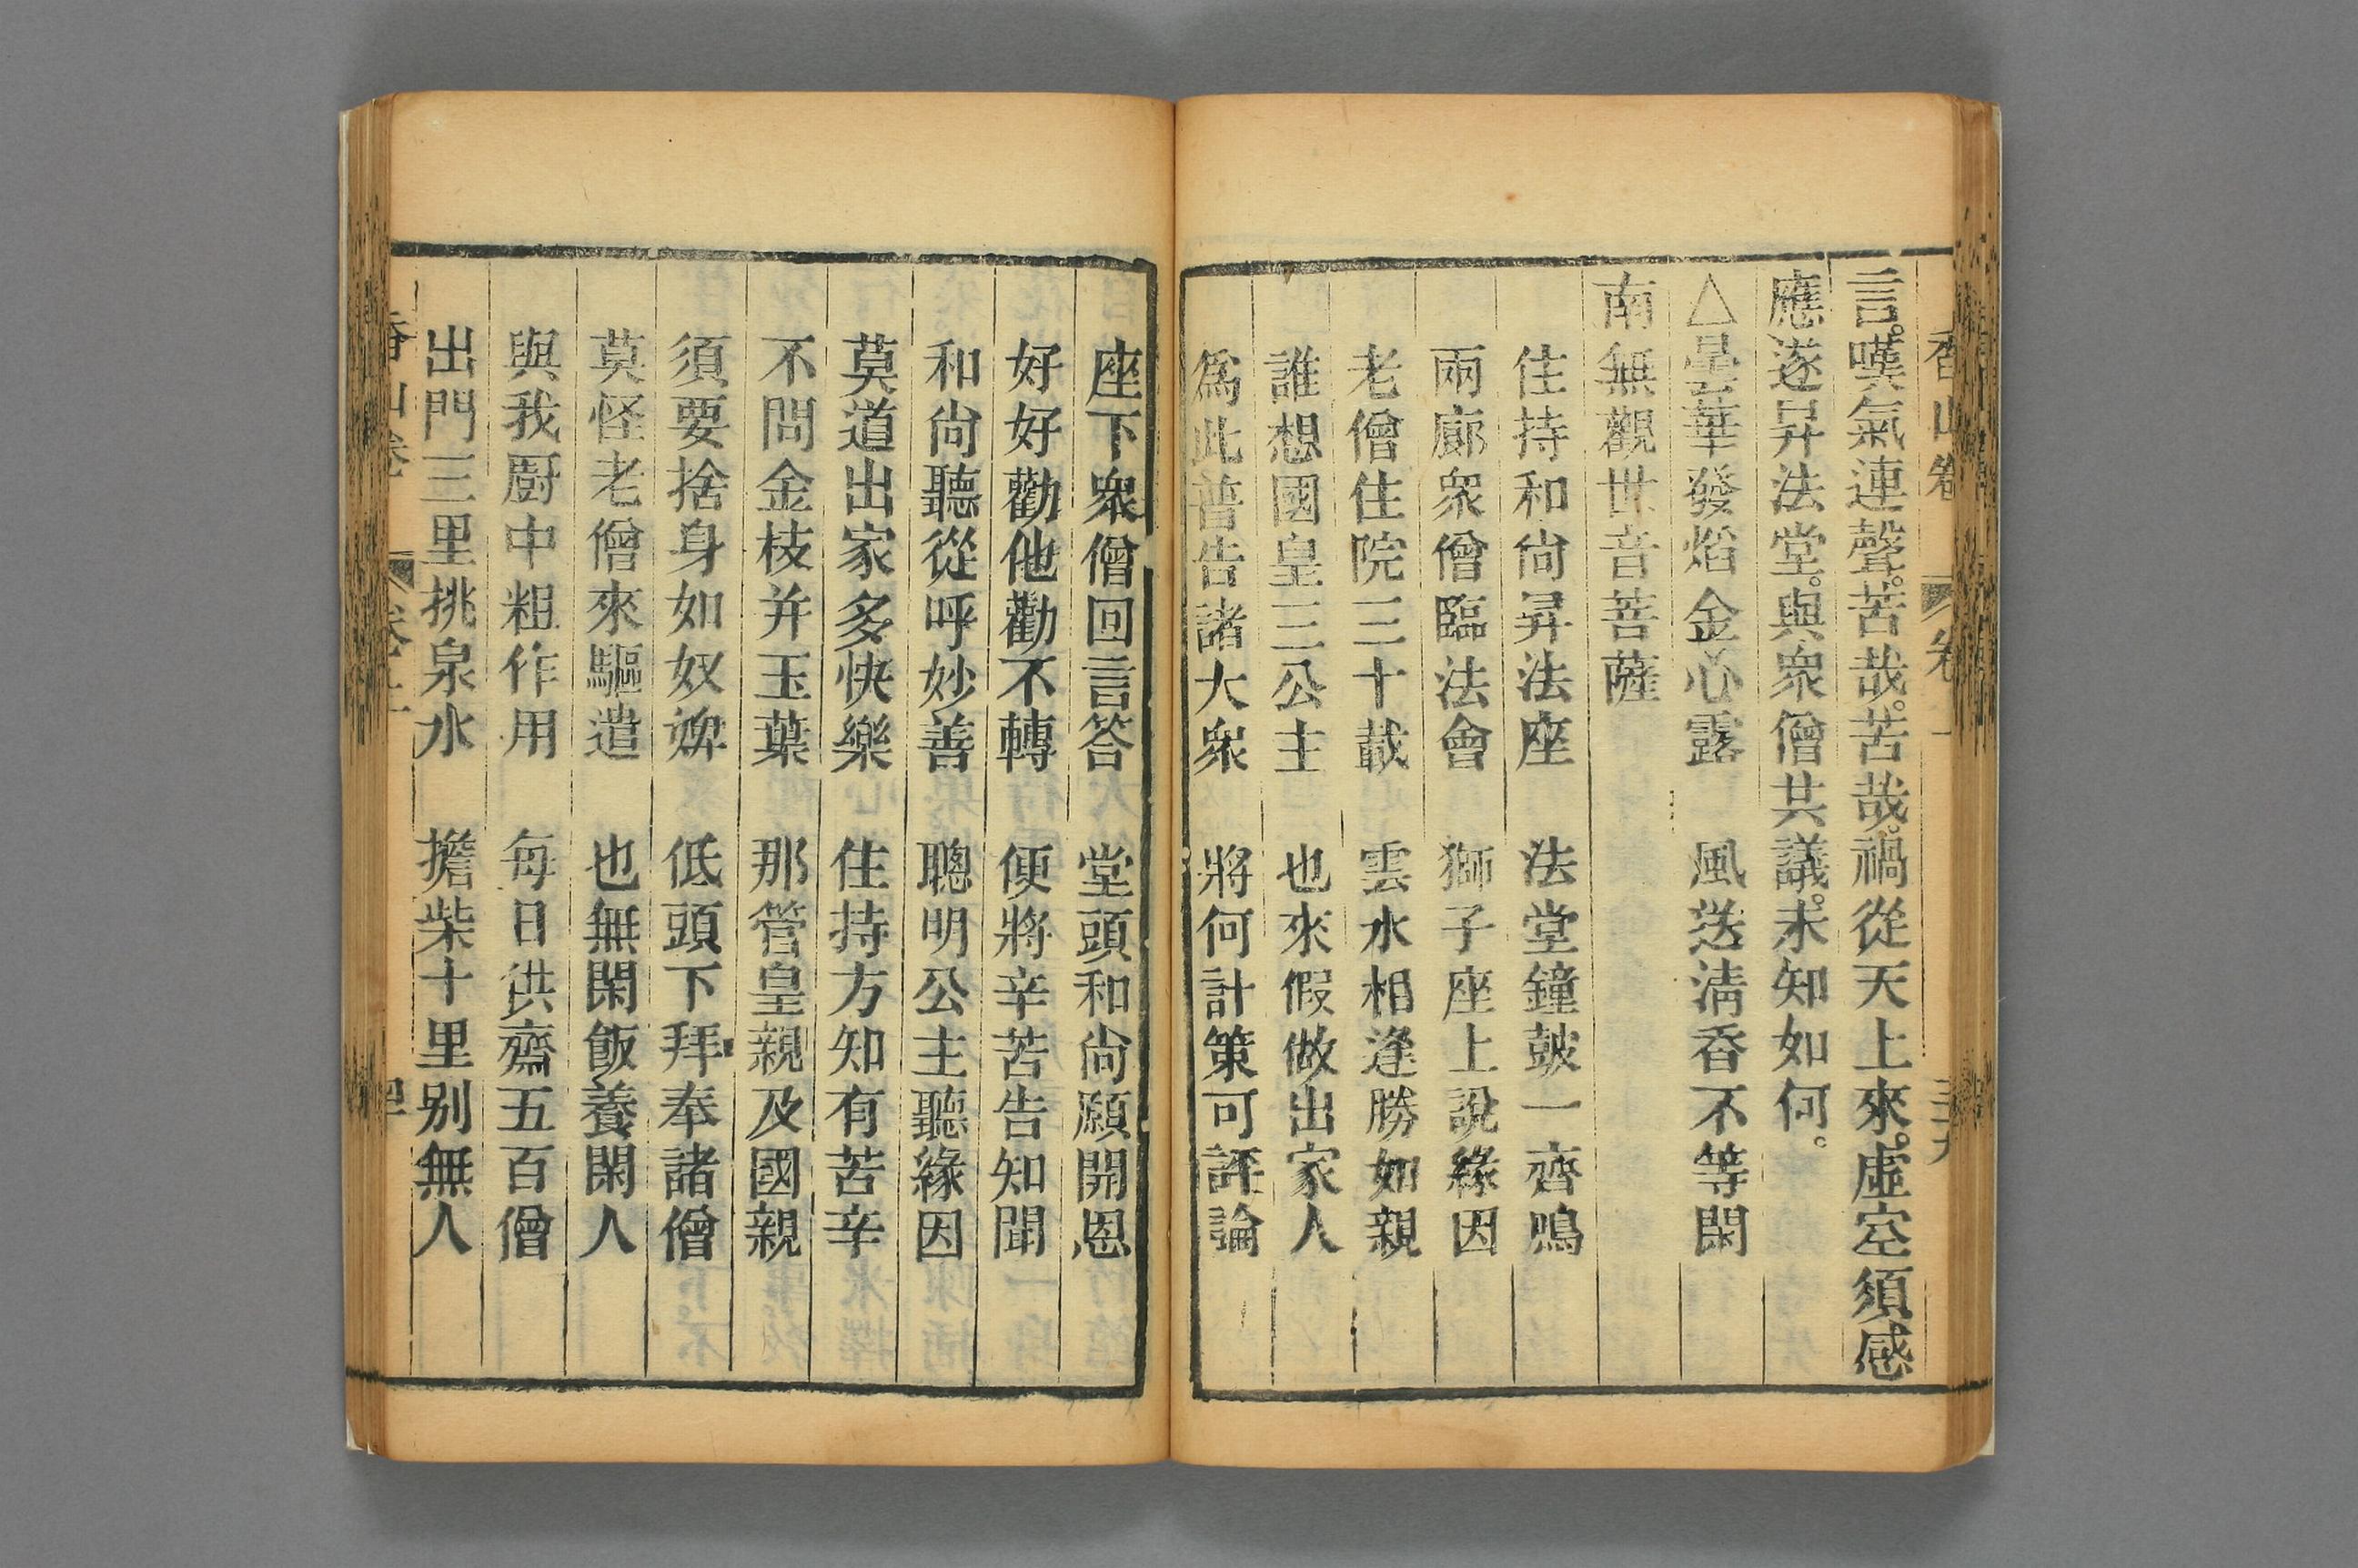 香山卷 卷 三十九
言。嘆氣連聲。苦哉。苦哉。禍從天上來。虛空須感
應。遂昇法堂。與眾僧共議。未知如何。
△曇華發焰金心露 風送清香不等閑
南無觀世音菩薩
住持和尚昇法座 法堂鐘皷一齊鳴
兩廊眾僧臨法會 獅子座上說緣因
老僧住院三十載 雲水相逢勝如親
誰想國皇三公主 也來假做出家人
為此普告諸大眾 將何計策可評論
座下衆僧回言答 堂頭和尚願開恩
好好勸他勸不轉 便將辛苦告知聞
和尚聽從呼妙善 聰明公主聽緣因
莫道出家多快樂 住持方知有苦辛
不問金枝并玉葉 那管皇親及國親
須要捨身如奴婢 低頭下拜奉諸僧
莫怪老僧來驅遣 也無閑飯養閑人
與我厨中粗作用 每日供齋五百僧
出門三里挑泉水 擔柴十里別無人
香山卷